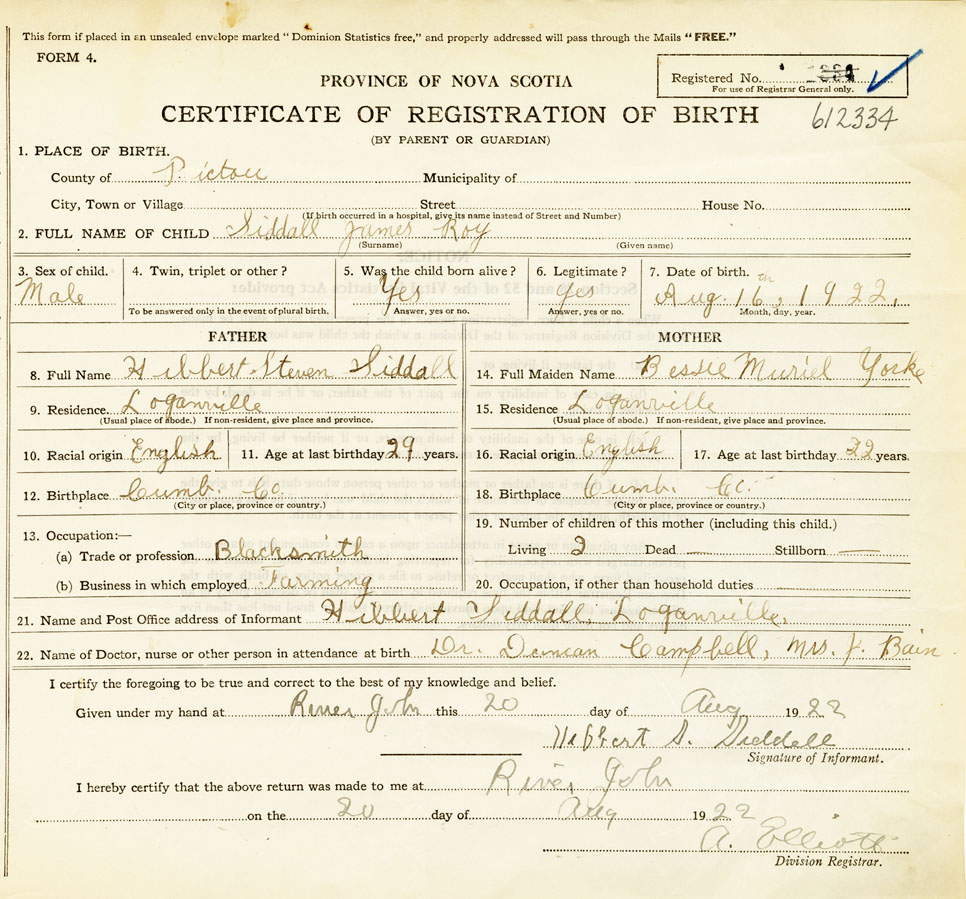 This form if placed in an unsealed envelope marked "Dominion Statistics free," and properly addressed will pass through the Mails "FREE."
FORM 4.
PROVINCE OF NOVA SCOTIA
Registered No.
For use of Registrar General only.
CERTIFICATE OF REGISTRATION OF BIRTH
612334
(BY PARENT OR GUARDIAN)
1. PLACE OF BIRTH.
County of Pictou Municipality of
City, Town or Village Street House No.
(If birth occurred in a hospital, give its name instead of Street and Number)
2. FULL NAME OF CHILD Siddall James Roy
(Surname) (Given name)
3. Sex of child. 4. Twin, triplet or other? 5. Was the child born alive? 6. Legitimate? 7. Date of birth.
Male Yes Yes Aug. 16th, 1922.
To be answered only in the event of plural birth. Answer, yes or no. Answer, yes or no. Month, day, year.
FATHER MOTHER
8. Full Name Hibbert Steven Siddall 14. Full Maiden Name Bessie Muriel Yorke
9. Residence. Loganville 15. Residence Loganville
(Usual place of abode.) If non-resident, give place and province. (Usual place of abode.) If non-resident, give place and province.
10. Racial origin English 11. Age at last birthday 29 years. 16. Racial origin English 17. Age at last birthday 22 years.
12. Birthplace Cumb. Co. 18. Birthplace Cumb. Co.
(City or place, province or country.) (City or place, province or country.)
13. Occupation:— 19. Number of children of this mother (including this child.)
(a) Trade or profession Blacksmith Living 2 Dead — Stillborn —
(b) Business in which employed Farming 20. Occupation, if other than household duties
21. Name and Post Office address of Informant Hibbert Siddall, Loganville.
22. Name of Doctor, nurse or other person in attendance at birth Dr. Duncan Campbell, Mrs. J. Bain.
I certify the foregoing to be true and correct to the best of my knowledge and belief.
Given under my hand at River John this 20 day of Aug 1922
Hibbert S. Siddall
Signature of Informant.
I hereby certify that the above return was made to me at River John
on the 20 day of Aug 1922
A. Elliott
Division Registrar.